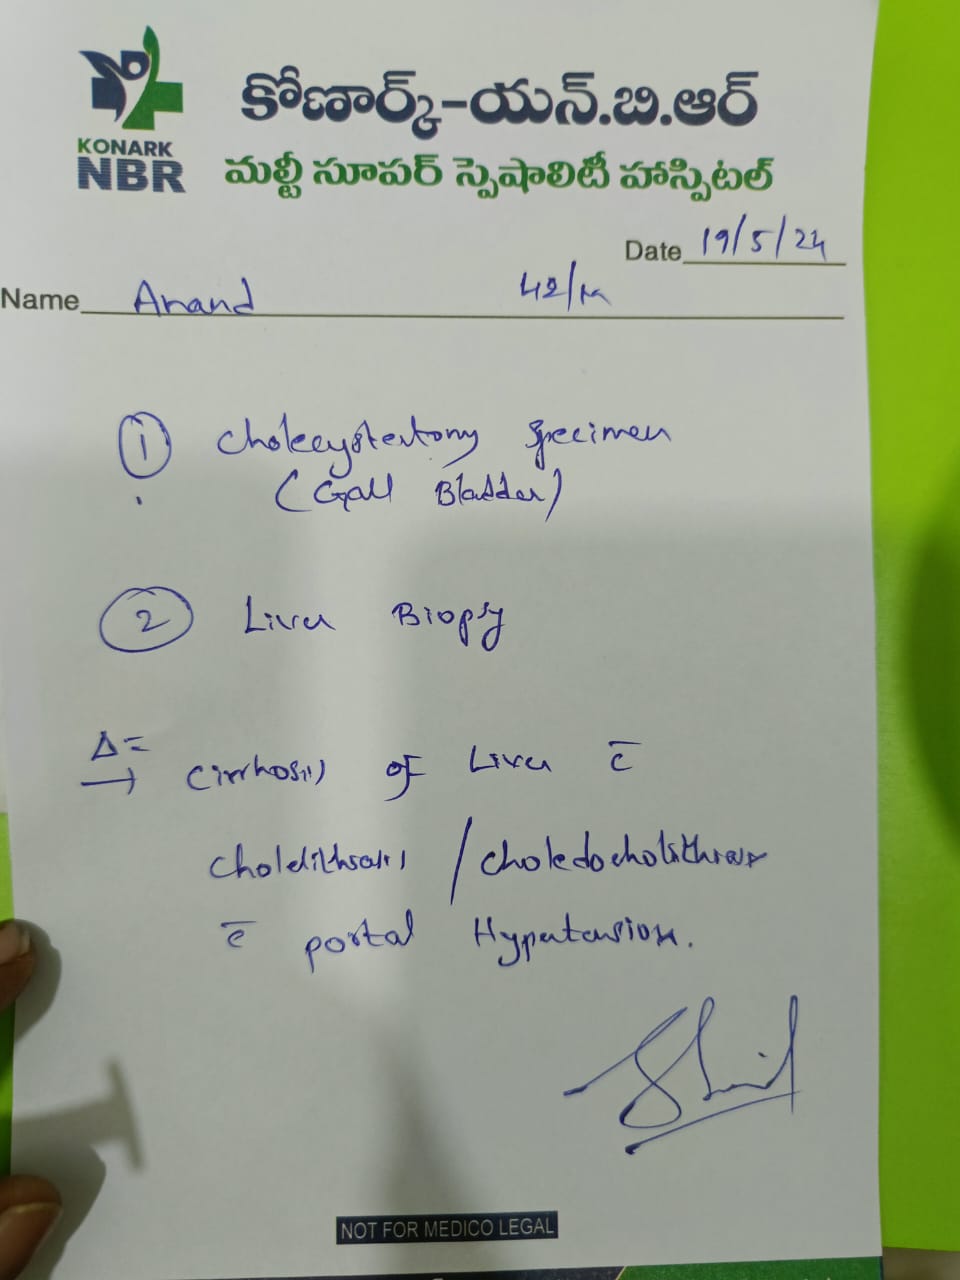 కోణార్క్-యన్.బి.ఆర్
KONARK
NBR
మల్టీ సూపర్ స్పెషాలిటీ హాస్పిటల్
Date 19/5/24
Name Anand 42/M
1 Cholecystectomy Specimen
(Gall Bladder)
2 Liver Biopsy
Δ=
→ Cirrhosis of Liver c̄
Cholelithiasis / choledocholithiasis
c̄ portal Hypertension.
NOT FOR MEDICO LEGAL